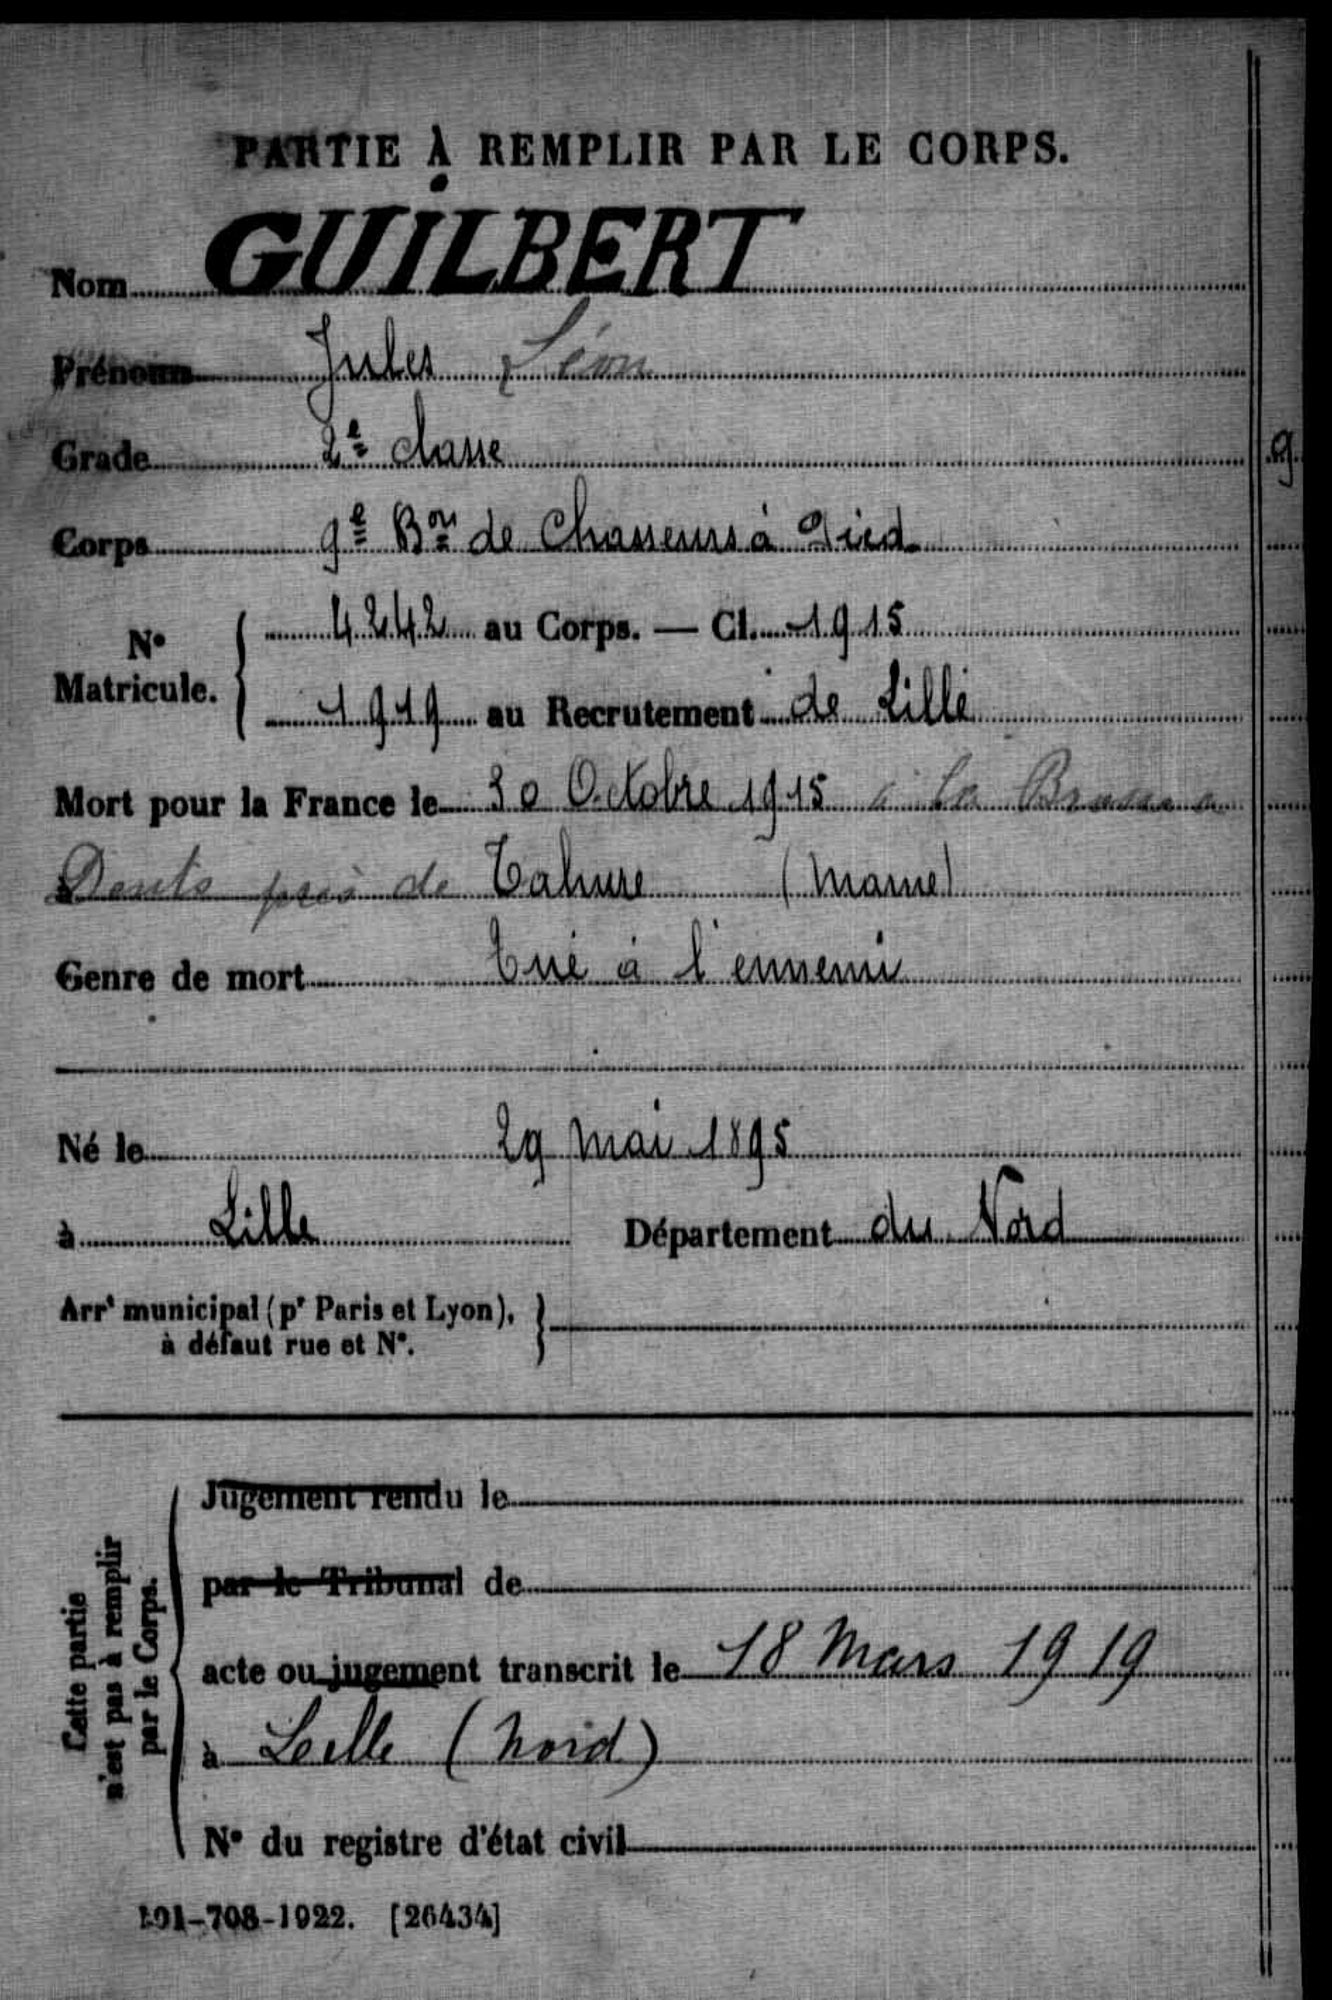 PARTIE À REMPLIR PAR LE CORPS.
Nom GUILBERT
Prénoms Jules Léon
Grade 2e classe
Corps 9e Bon de Chasseurs à Pied
N° Matricule. 4242 au Corps. — Cl. 1915
1919 au Recrutement de Lille
Mort pour la France le 30 Octobre 1915 à la
Dents près de Tahure (Marne)
Genre de mort Tué à l'ennemi
Né le 29 mai 1895
à Lille Département du Nord
Arrt municipal (pr Paris et Lyon),
à défaut rue et N°.
Cette partie
n'est pas à remplir
par le Corps.
Jugement rendu le
par le Tribunal de
acte ou jugement transcrit le 18 Mars 1919
à Lille (Nord)
N° du registre d'état civil
-708-1922. [26434]
9